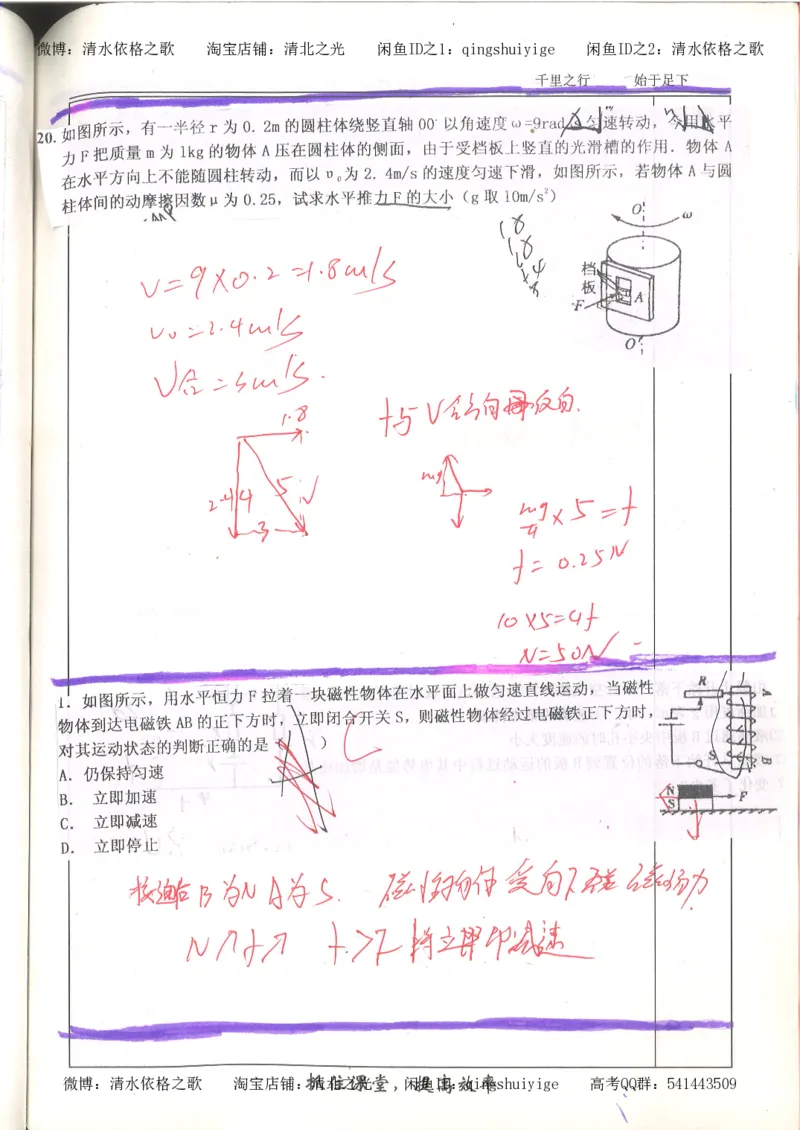 微博：清水依格之歌 淘宝店铺：清北之光 闲鱼ID之1：qingshuiyige 闲鱼ID之2：清水依格之歌
千里之行 始于足下
20. 如图所示，有一半径 r 为 0.2m 的圆柱体绕竖直轴 OO′ 以角速度 ω=9rad/s 匀速转动，今用水平
力 F 把质量 m 为 1kg 的物体 A 压在圆柱体的侧面，由于受档板上竖直的光滑槽的作用．物体 A
在水平方向上不能随圆柱转动，而以 υ₀ 为 2.4m/s 的速度匀速下滑，如图所示，若物体 A 与圆
柱体间的动摩擦因数 μ 为 0.25，试求水平推力 F 的大小（g 取 10m/s²）
O′ ω
档
板
F A
O′
V=9×0.2=1.8m/s
v₀=2.4m/s
V合=3m/s.
1.8
2.4 4 5 V
3
f与V合方向反向.
mg
mg/4 ×5=f
f=0.25N
10×5=4f
N=50N
1. 如图所示，用水平恒力 F 拉着一块磁性物体在水平面上做匀速直线运动，当磁性
物体到达电磁铁 AB 的正下方时，立即闭合开关 S，则磁性物体经过电磁铁正下方时，
对其运动状态的判断正确的是（ ）
C
A．仍保持匀速
B． 立即加速
C． 立即减速
D． 立即停止
R A
S B
N
S F
接通后B为N A为S. 磁性物体受向下磁场力
N↗f↗ f>F 将立即减速
微博：清水依格之歌 淘宝店铺：清北之光 闲鱼ID：qingshuiyige 高考QQ群：541443509
抓住课堂，提高效率